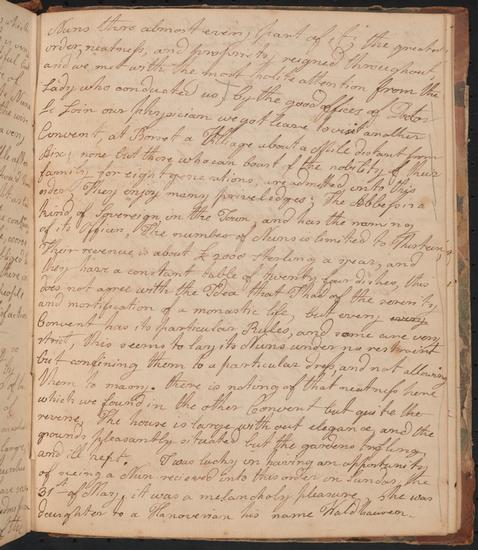 Nuns thro almost every part of it: the greatest
order, neatness, and propriety reigned throughout,
and we met with the most polite attention from the
Lady who conducted us; by the good offices of Doctor
Le Soin our physician we got leave to visit another
Convent, at Borset a Village about a Mile distant from
Aix; none but those who can boast of the nobility of their
family for eight generations, are admitted into this
order. They enjoy many priveledges; The Abbess is a
kind of Sovereign in the Town, and has the naming
of its officers, The number of Nuns is limited to Thirteen,
Their revenue is about £2000 sterling a year, and
they have a constant table of twenty four dishes, this
does not agree with the Idea that I had of the severity
and mortification of a monastic life, but every
Convent has its particular Rules, and some are very
strict, This seems to lay its Nuns under no restraint
but confining them to a particular dress, and not allowing
them to marry. there is noting of that neatness here
which we found in the other Convent but quite the
reverse. The house is large with out elegance, and the
grounds pleasantly situated but the gardens
and ill kept. I was lucky in having an opportunity
of seeing a Nun recieved into this order on Sunday the
31st of May, it was a melancholy pleasure. She was
daughter to a Hanoverian his name